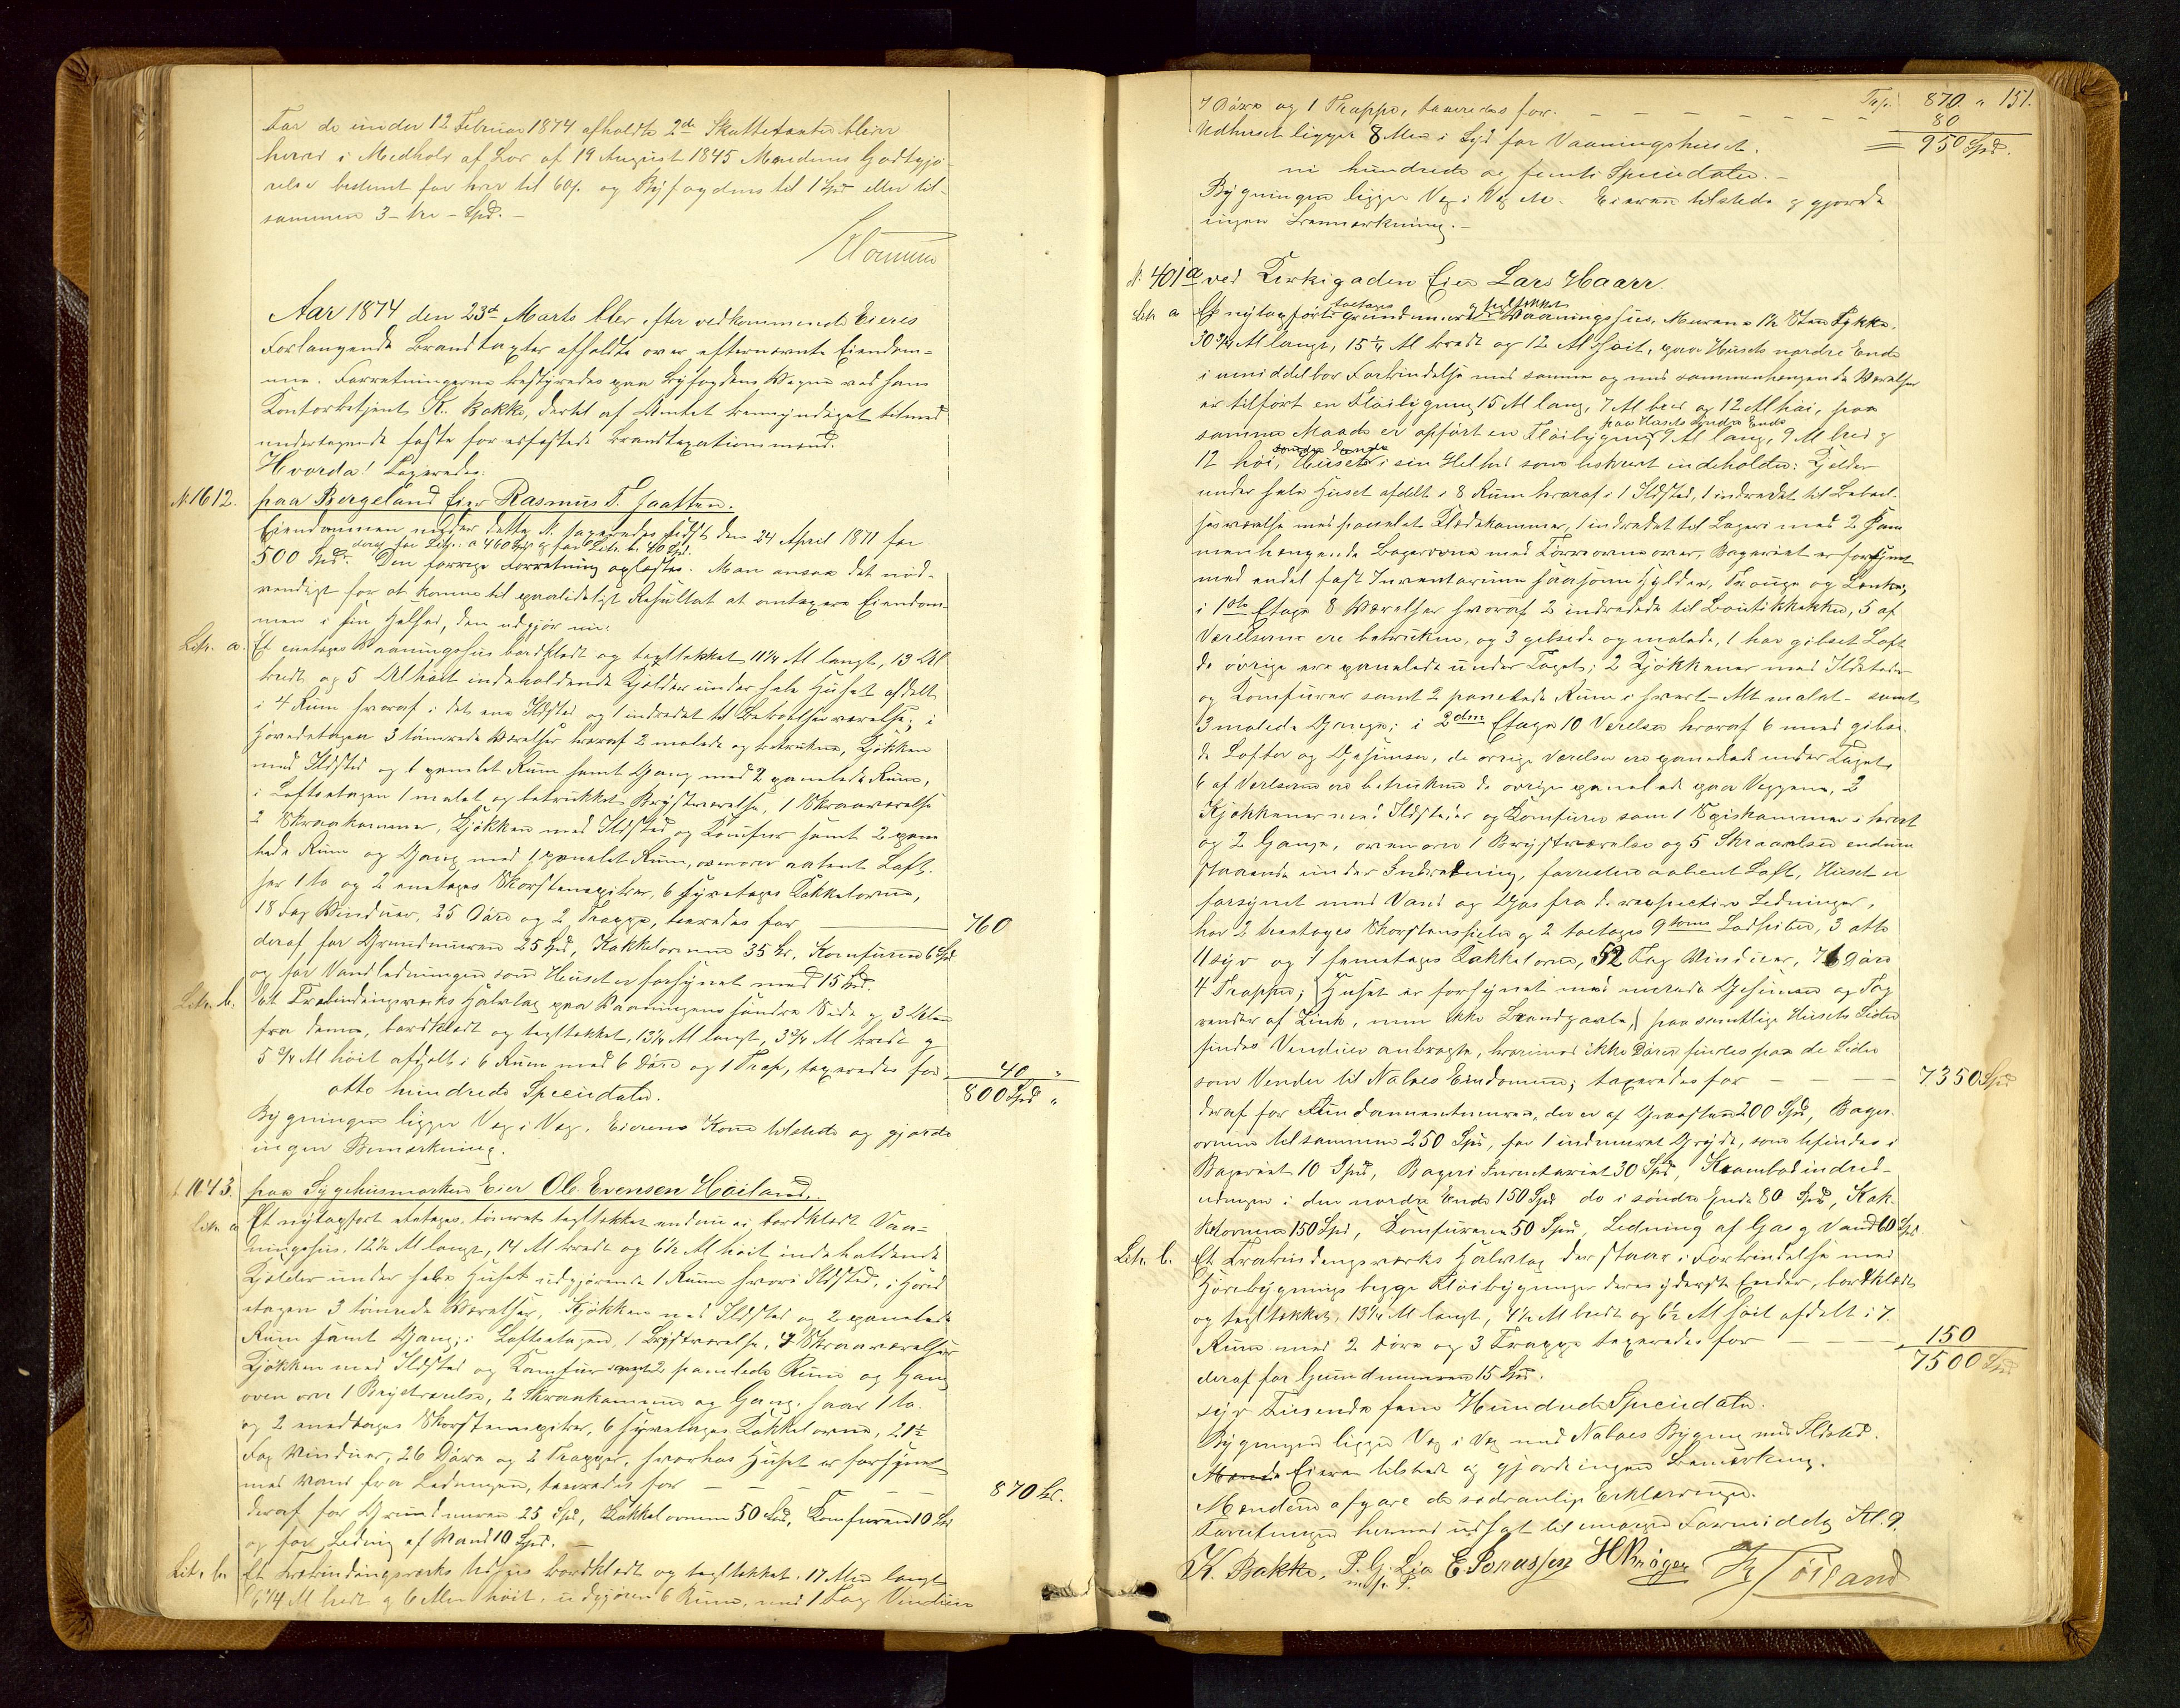 For de under 12 Februar 1874 afholdte 2de Skattetaxter bliver
herved i Medhold af Lov af 19 August 1845 Mændenes Godtgjø-
relse bestemt for hver til 60 s. og Byfogdens til 1 Spd eller til-
sammen 3 - tre - Spd. -
Aar 1874 den 23de Marts blev efter vedkommende Eieres
Forlangende Brandtaxter afholdte over efternævnte Eiendom-
me. Forretningerne bestyredes paa Byfogdens Vegne ved hans
Kontorbetjent K. Bakke, dertil af Amtet bemyndiget tilmed
undertegnede faste for edfæstede Brandtaxationsmænd.
Hvorda! Taxeredes:
No 1612. paa Bergeland Eier Rasmus T. Jaatten.
Eiendommen under dette No taxeredes sidst den 24 April 1871 for
deraf for Litr. a 460 Spd og for Litr. b. 40 Spd.
500 Spd. Den forrige Forretning oplæstes. Man ansaa det nød-
vendigt for at komme til paalideligt Resultat at omtaxere Eiendom-
men i sin Helhed, den udgjør nu:
Litr. a. Et enetages Vaaningshus bordklædt og tegltækket 11 3/4 Al langt, 13 Al
bredt og 5 Al høit indeholdende Kjelder under hele Huset afdelt
i 4 Rum hvoraf i det ene Ildsted og 1 indredet til Beboelsesværelse; i
Hovedetagen 3 tømrede Værelser hvoraf 2 malede og betrukne, Kjøkken
med Ildsted og 1 panelet Rum samt Gang med 2 panelede Rum,
i Loftsetagen 1 malet og betrukket Brystværelse, 1 Skraaværelse
2 Skraakammer, Kjøkken med Ildsted og Komfur samt 2 pane
lede Rum og Gang med 1 panelet Rum, ovenover aabent Loft.
har 1 to og 2 enetages Skorstenspiber, 6 fyretages Kakkelovne,
18 Fag Vinduer, 25 Døre og 2 Trapper, taxeredes for 760
deraf for Grundmuren 25 Spd, Kakkelovnene 35 Spd, Komfuren 6 Spd
og for Vandledningen som Huset er forsynet med 15 Spd.
Litr. b. Et Træbindingsværks Halvtag paa Vaaningens søndre Side og 3 Alen
fra denne, bordklædt og tegltækket, 13 1/4 Al langt, 3 3/4 Al bredt og
5 3/4 Al høit afdelt i 6 Rum med 6 Døre og 1 Trap, taxeredes for 40 "
otte hundrede Speciedaler. 800 Spd "
Bygningen ligger Væg i Væg. Eierens Kone tilstede og gjorde
ingen Bemærkning.
1043. paa Sygehusmarken Eier Ole Evensen Høiland.
Litr. a Et nyopført etetages tømret tegltækket endnu ei bordklædt Vaa-
ningshus. 12 1/2 Al langt, 14 Al bredt og 6 1/2 Al høit indeholdende
Kjelder under hele Huset udgjørende 1 Rum hvori Ildsted, i Hoved
etagen 3 tømrede Værelser, Kjøkken med Ildsted og 2 panelede
Rum samt Gang; i Loftsetagen 1 Brystværelse, 4 Skraaværelser
Kjøkken med Ildsted og Komfur samt 2 panelede Rum og Gang
oven over 1 Brystværelse, 2 Skraakammer og Gang. haar 1 to
og 2 enedtages Skorstenspiber, 6 fyretages Kakkelovne, 21 1/2
Fag Vinduer, 26 Døre og 2 Trapper, hvorhos Huset er forsynet
med Vand fra Ledningen, taxeredes for - - - 870 Spd.
deraf for Grundmuren 25 Spd, Kakkelovnene 50 Spd, Komfuren 10 Spd
og for Ledning af Vand 10 Spd. -
Litr. b. Et Træbindingsværks Udhus bordklædt og tegltækket. 17 Alen langt
6 1/4 Al bredt og 6 Alen høit, udgjørende 6 Rum, med 1 Fag Vinduer
151.
7 Døre og 1 Trappe, taxeredes for. - - - Trsp. 870 "
80
Udhuset ligger 8 Alen i Syd for Vaaningshuset. = 950 Spd.
ni hundrede og femti Speciedaler. -
Bygningen ligger Væg i Væg etc. Eieren tilstede og gjorde
ingen Bemærkning. -
No 401a ved Kirkegaden Eier Lars Haarr.
toetages og tegltækket
Litr. a Et nyopført grundmuret Vaaningshus, Murene 1 1/2 Sten Tykke.
30 3/4 Al langt, 15 1/4 Al bredt og 12 Al høit, paa Husets nordre Ende
i umiddelbar Forbindelse med samme og med sammenhængende Værelser
er tilført en Fløibygning 15 Al lang, 7 Al bred og 12 Al høi, paa
paa Husets Søndre Ende
samme Maade er opført en Fløibygning 9 Al lang, 9 Al bred og
12 høi, Huset i sin Helhed som beskrevet indeholder: Kjelder
under hele Huset afdelt i 8 Rum hvoraf i 1 Ildsted, 1 indredet til Beboel-
sesværelse med panelet Klædekammer, 1 indredet til Bageri med 2 sam
menhængende Bagerovne med Tørreovne over, Bageriet er forsynet
med endel fast Inventarium saasom Hylder, Trauge og Bænke,
i 1ste Etage 8 Værelser hvoraf 2 indredede til Boutikkelokker, 5 af
Værelserne ere betrukne, og 3 gibsede og malede, 1 har gibset Loft
de øvrige ere panelede under Taget; 2 Kjøkkener med Ildsteder
og Komfurer samt 2 panelede Rum i hvert - Alt malet - samt
3 malede Gange; i 2den Etage 10 Værelser hvoraf 6 med gibse-
de Lofter og Gesimser, de øvrige Værelser ere panelede under Taget,
6 af Værelserne ere betrukne de øvrige panelede paa Væggene, 2
Kjøkkener med Ildsteder og Komfurer samt 1 Spiskammer i hvert
og 2 Gange, ovenover 1 Brystværelse og 5 Skraaværelser endnu
staaende under Indredning, forresten aabent Loft, Huset er
forsynet med Vand og Gas fra de respective Ledninger,
har 2 treetages Skorstenspiber og 2 toetages Ladpiber, 3 otte
11 syv og 1 femetages Kakkelovne, 52 Fag Vinduer, 76 Døre
4 Trapper; Huset er forsynet med murede Gesimser og Tag
render af Zink, men ikke Brandgavle, paa samtlige Husets Sider
findes Vinduer anbragte, hvorimod ikke Døre findes paa de Sider
som Vender til Naboes Eiendomme; taxeredes for - - - 7350 Spd
deraf for Fundamentmuren, der er af Graasten 200 Spd, Bager
ovnene tilsammen 250 Spd, for 1 indmuret Gryde, som befindes i
Bageriet 10 Spd, Bageri Inventariet 30 Spd, Krambodindred-
ningen i den nordre Ende 150 Spd do i søndre Ende 80 Spd, Kak-
kelovnene 150 Spd, Komfurerne 50 Spd, Ledning af Gas og Vand 60 Spd.
Litr. b. Et Træbindingsværks Halvtag der staar i Forbindelse med
Hovedbygnings begge Fløibygninger deres yderste Ender, bordklædt
og tegltækket, 13 1/4 Al langt, 4 1/2 Al bredt og 6 1/2 Al høit afdelt i 7
Rum med 2 Døre og 3 Trapper taxeredes for - - - 150
deraf for Grundmuren 15 Spd. 7500 Spd
syv Tusende fem Hundrede Speciedaler.
Bygningen ligger Væg i Væg med Naboes Bygning med Ildsted.
Eieren tilstede og gjorde ingen Bemærkning.
Mændene afgave de sædvanlige Erklæringer.
Forretningen hermed udsat til imorgen Formiddag Kl. 9.
K. Bakke. P. G. Lea E Jonassen H Krøger Tørland
m. f. P.